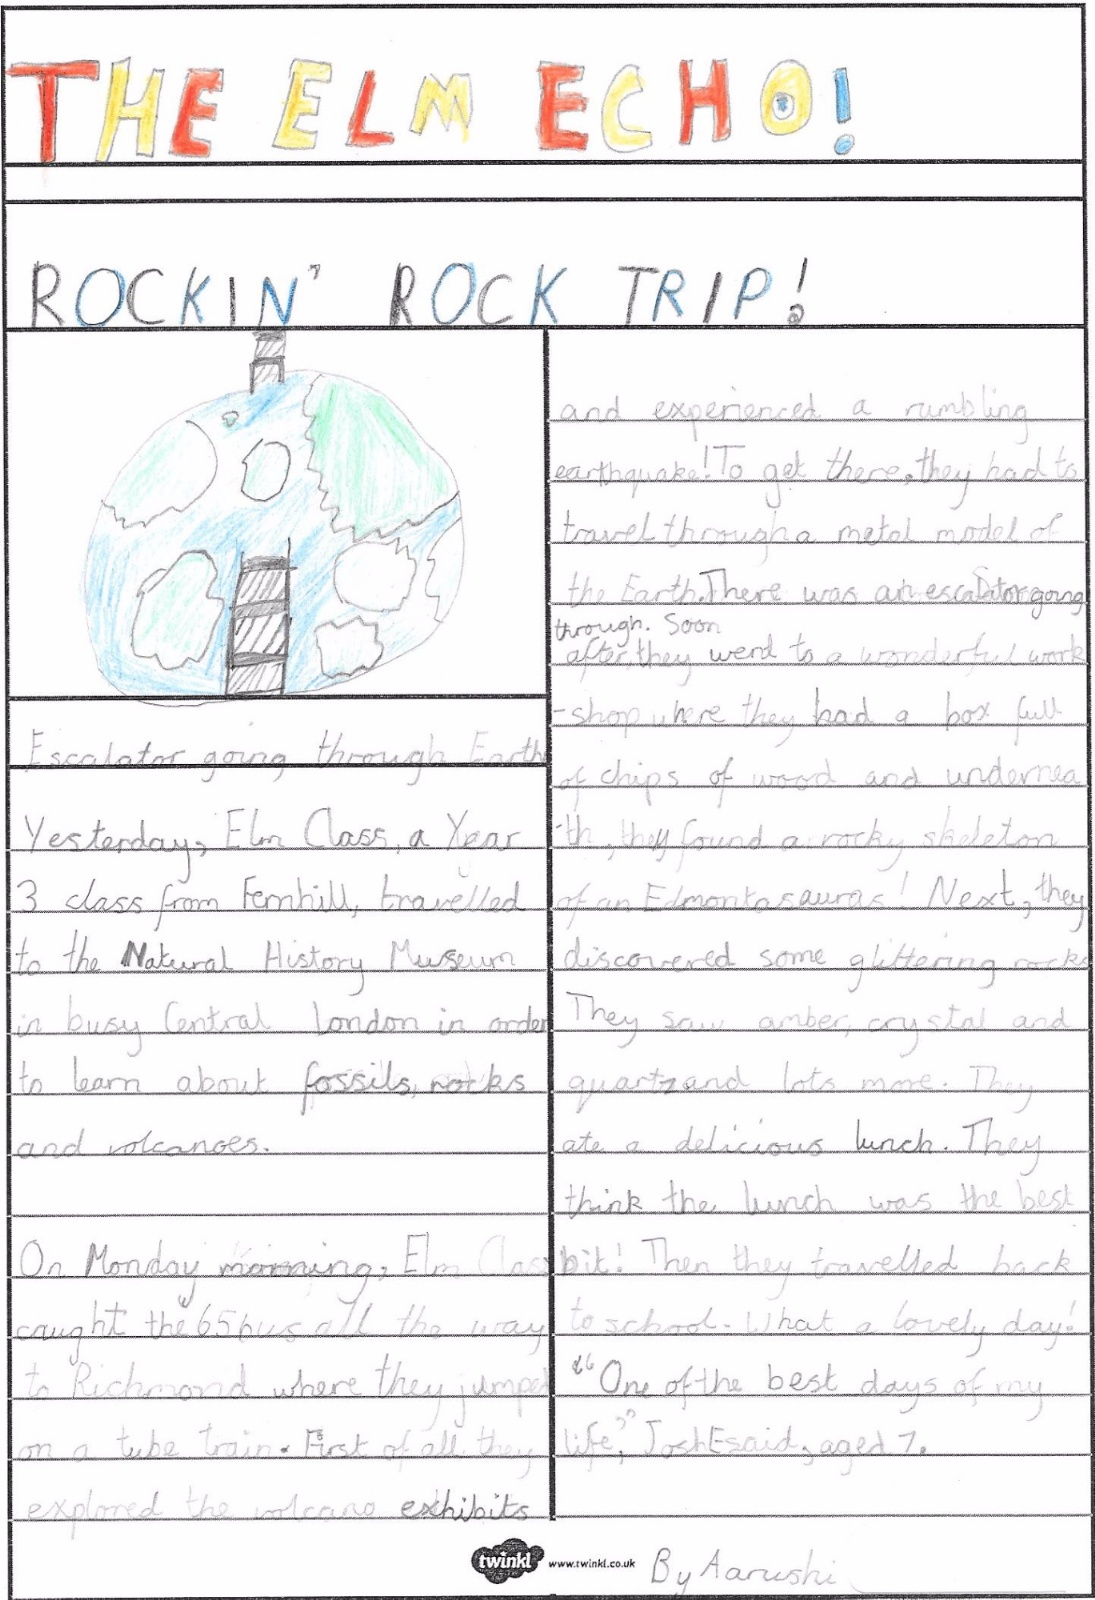 THE ELM ECHO!
ROCKIN' ROCK TRIP!
Escalator going through Earth
Yesterday, Elm Class, a Year
3 class from Fernhill, travelled
to the Natural History Museum
in busy Central London in order
to learn about fossils, rocks
and volcanoes.
On Monday morning, Elm Class
caught the 65 bus all the way
to Richmond where they jumped
on a tube train. First of all they
explored the volcano exhibits
and experienced a rumbling
earthquake! To get there, they had to
travel through a metal model of
the Earth. There was an escalator going
through. Soon
after they went to a wonderful work
-shop where they had a box full
of chips of wood and undernea
-th, they found a rocky skeleton
of an Edmontosauras! Next, they
discovered some glittering rocks
They saw amber, crystal and
quartz and lots more. They
ate a delicious lunch. They
think the lunch was the best
bit! Then they travelled back
to school. What a lovely day!
"One of the best days of my
life," Josh E said, aged 7.
twinkl www.twinkl.co.uk
By Aarushi